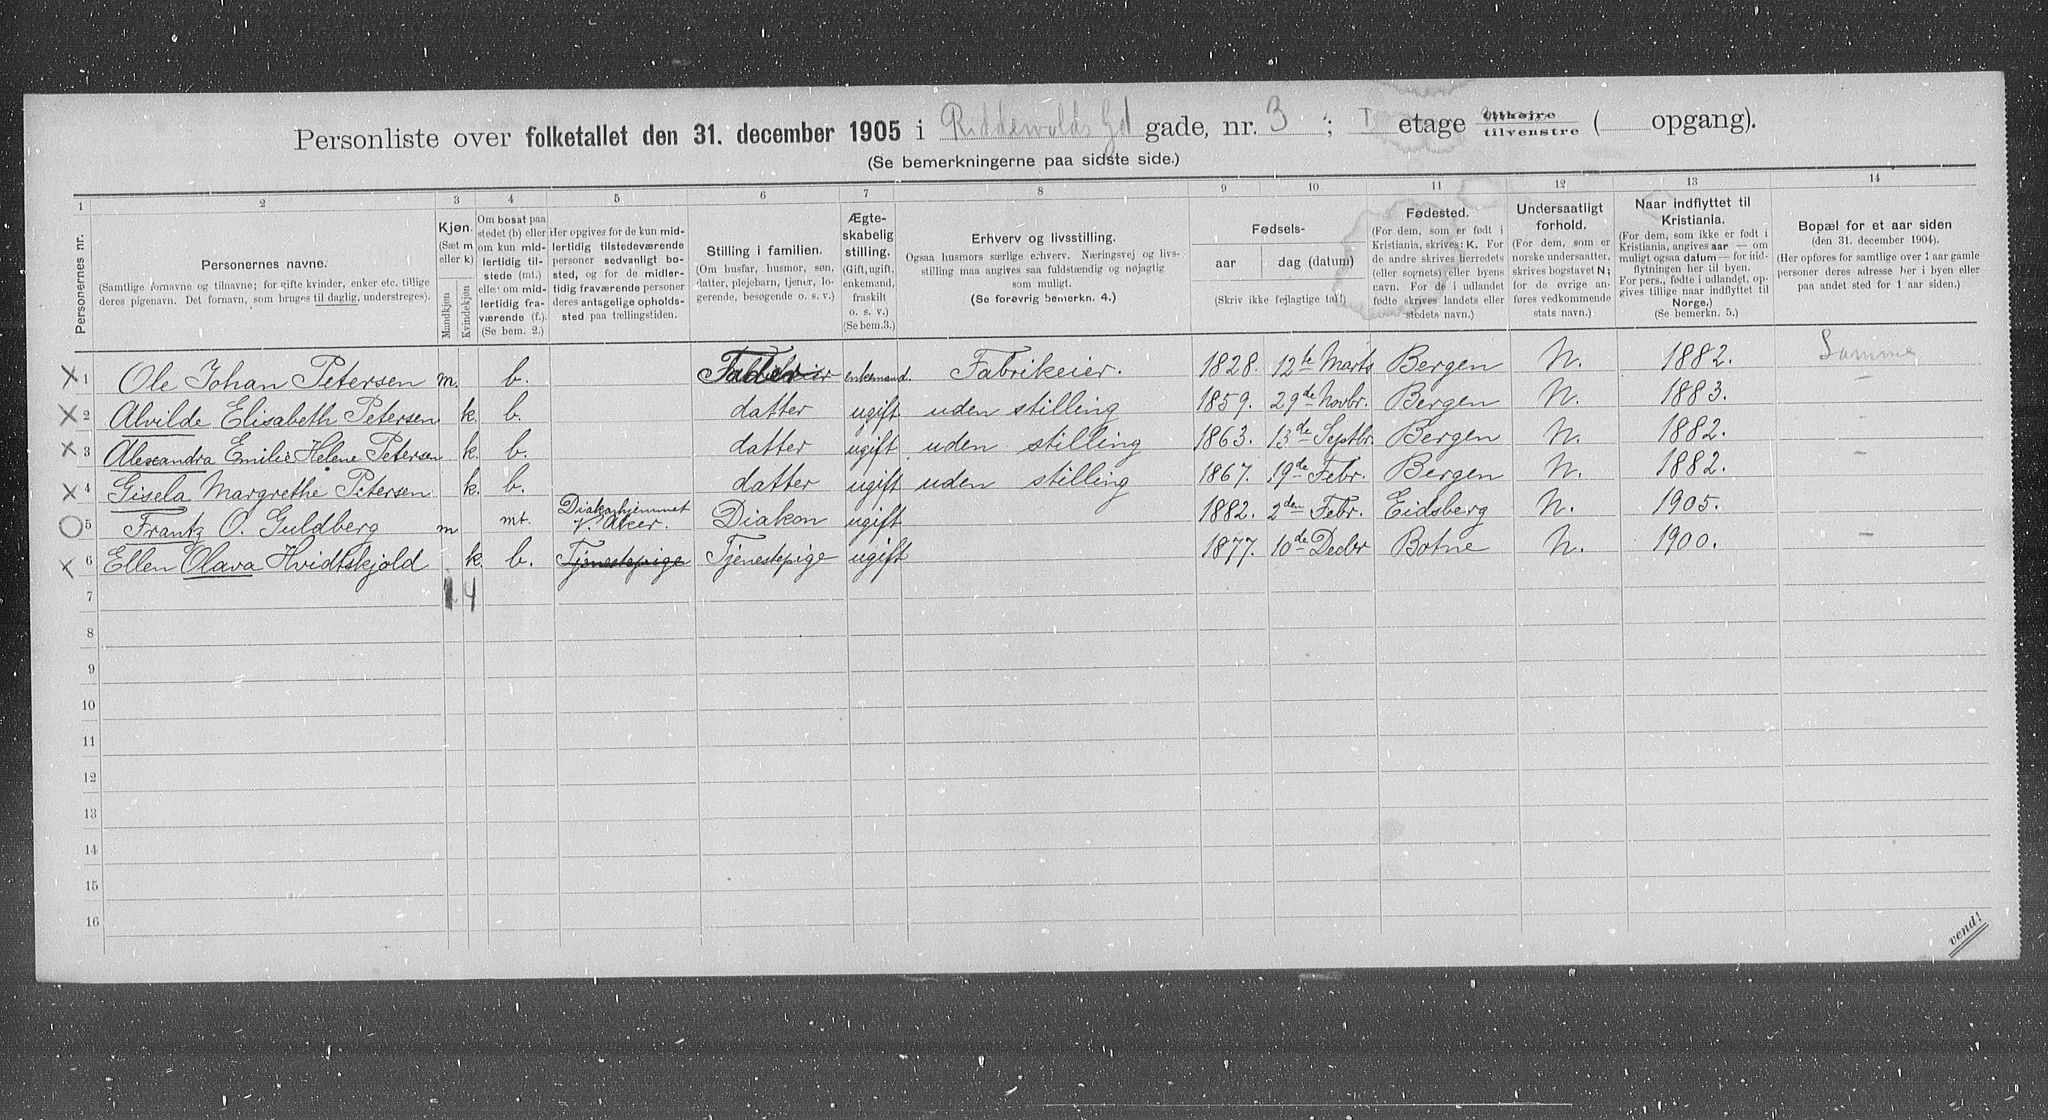 Personliste over folketallet den 31. december 1905 i Riddervolds Gd gade, nr. 3 ; I etage tilhøjre tilvenstre ( opgang).
(Se bemerkningerne paa sidste side.)
1 2 3 4 5 6 7 8 9 10 11 12 13 14
Personernes nr.
Personernes navne.
(Samtlige fornavne og tilnavne; for gifte kvinder, enker etc. tillige deres pigenavn. Det fornavn, som bruges til daglig, understreges).
Kjøn.
(Sæt m eller k)
Mandkjøn. Kvindekjøn.
Om bosat paa stedet (b) eller om kun midlertidig tilstede (mt.) eller om midlertidig fraværende (f.). (Se bem. 2.)
Her opgives for de kun midlertidig tilstedeværende personer sedvanlig bosted, og for de midlertidig fraværende personer deres antagelige opholdssted paa tællingstiden.
Stilling i familien.
(Om husfar, husmor, søn, datter, plejebarn, tjener, logerende, besøgende o. s. v.)
Ægteskabelig stilling.
(Gift, ugift, enkemand, fraskilt o. s. v.) (Se bem.3.)
Erhverv og livsstilling.
Ogsaa husmors særlige erhverv. Næringsvej og livsstilling maa angives saa fuldstændig og nøjagtig som muligt.
(Se forøvrig bemerkn. 4.)
Fødsels-
aar dag (datum)
(Skriv ikke fejlagtige tal!)
Fødested.
(For dem, som er født i Kristiania, skrives: K. For de andre skrives herredets (eller sognets) eller byens navn. For de i udlandet fødte skrives landets eller stedets navn.)
Undersaatligt forhold.
(For dem, som er norske undersaatter, skrives bogstavet N; for de øvrige anføres vedkommende stats navn.)
Naar indflyttet til Kristiania.
(For dem, som ikke er født i Kristiania, angives aar — om muligt ogsaa datum — for indflytningen her til byen. For pers., fødte i udlandet, opgives tillige naar indflyttet til Norge.)
(Se bemerkn. 5.)
Bopæl for et aar siden
(den 31. december 1904).
(Her opføres for samtlige over 1 aar gamle personer deres adresse her i byen eller paa andet sted for 1 aar siden.)
X 1 Ole Johan Petersen m. b. Fader enkemand. Fabrikeier. 1828. 12te Marts Bergen N. 1882. Samme
X 2 Alvilde Elisabeth Petersen k. b. datter ugift uden stilling 1859. 29de Novbr. Bergen N. 1883. —
X 3 Alexandra Emilie Helene Petersen k. b. datter ugift uden stilling 1863. 13de Septbr. Bergen N. 1882. —
X 4 Gisela Margrethe Petersen k. b. datter ugift uden stilling 1867. 19de Febr. Bergen N. 1882. —
O 5 Frantz O. Guldberg m mt. Diakonhjemmet V. Aker. Diakon ugift 1882. 2den Febr. Eidsberg N. 1905. —
X 6 Ellen Olava Hvidtskjold k. b. Tjenestepige Tjenestepige ugift 1877. 10de Decbr Botne N. 1900. —
7 1 4
8
9
10
11
12
13
14
15
16
vend!